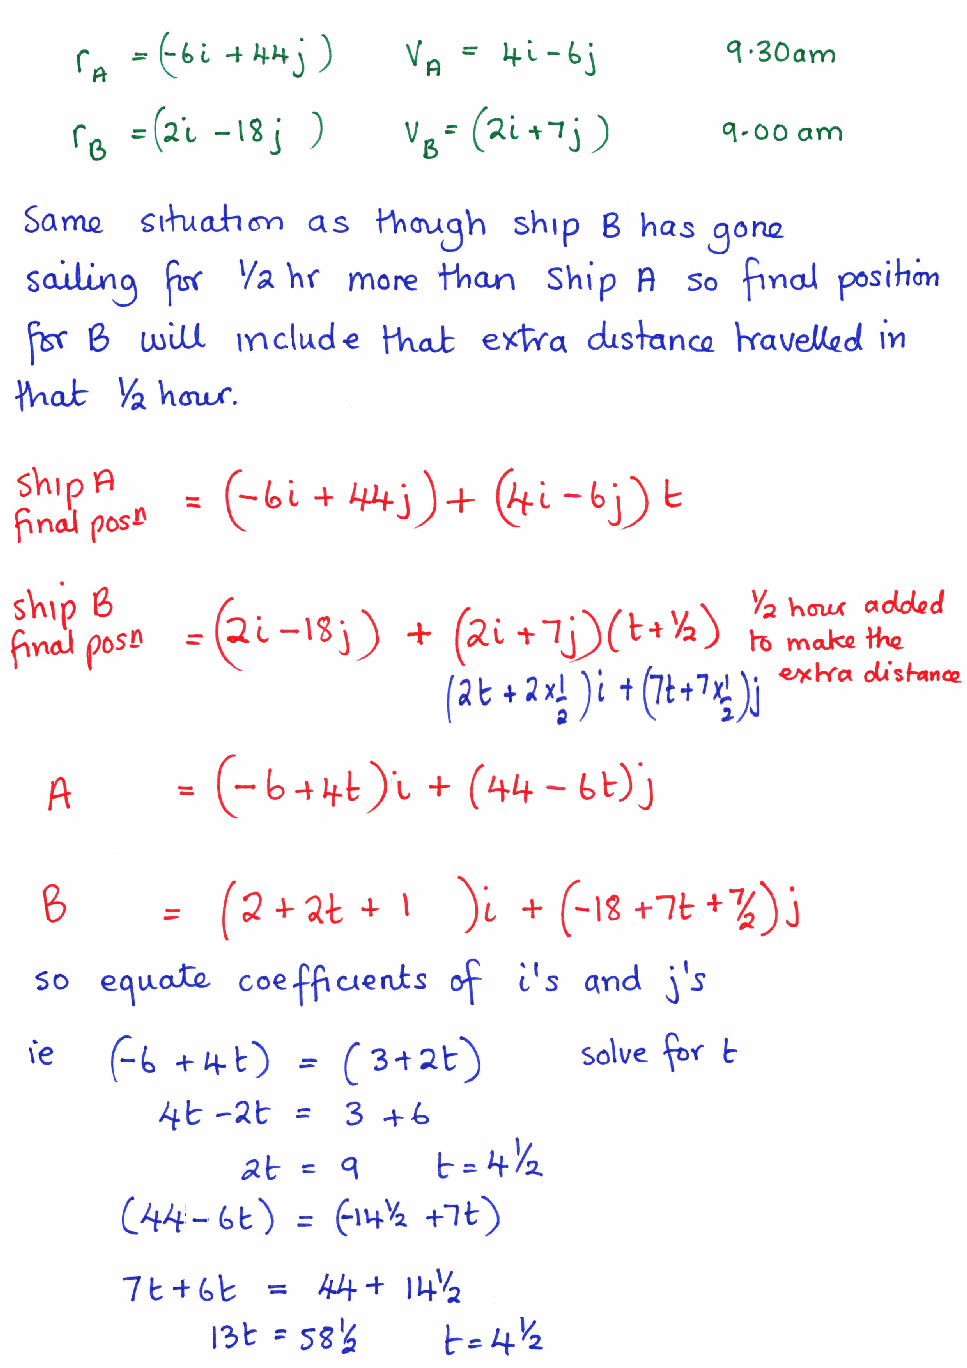 r_A = (-6i + 44j) V_A = 4i - 6j 9·30am
r_B = (2i - 18j ) V_B = (2i + 7j) 9.00 am
Same situation as though ship B has gone
sailing for 1/2 hr more than Ship A so final position
for B will include that extra distance travelled in
that 1/2 hour.
Ship A
final posn = (-6i + 44j) + (4i - 6j) t
ship B
final posn = (2i - 18j) + (2i + 7j)(t + 1/2) 1/2 hour added
to make the
extra distance
(2t + 2x1/2)i + (7t + 7x1/2)j
A = (-6 + 4t)i + (44 - 6t)j
B = (2 + 2t + 1 )i + (-18 + 7t + 7/2)j
so equate coefficients of i's and j's
ie (-6 + 4t) = (3 + 2t) solve for t
4t - 2t = 3 + 6
2t = 9 t = 4 1/2
(44 - 6t) = (-14 1/2 + 7t)
7t + 6t = 44 + 14 1/2
13t = 58 1/2 t = 4 1/2